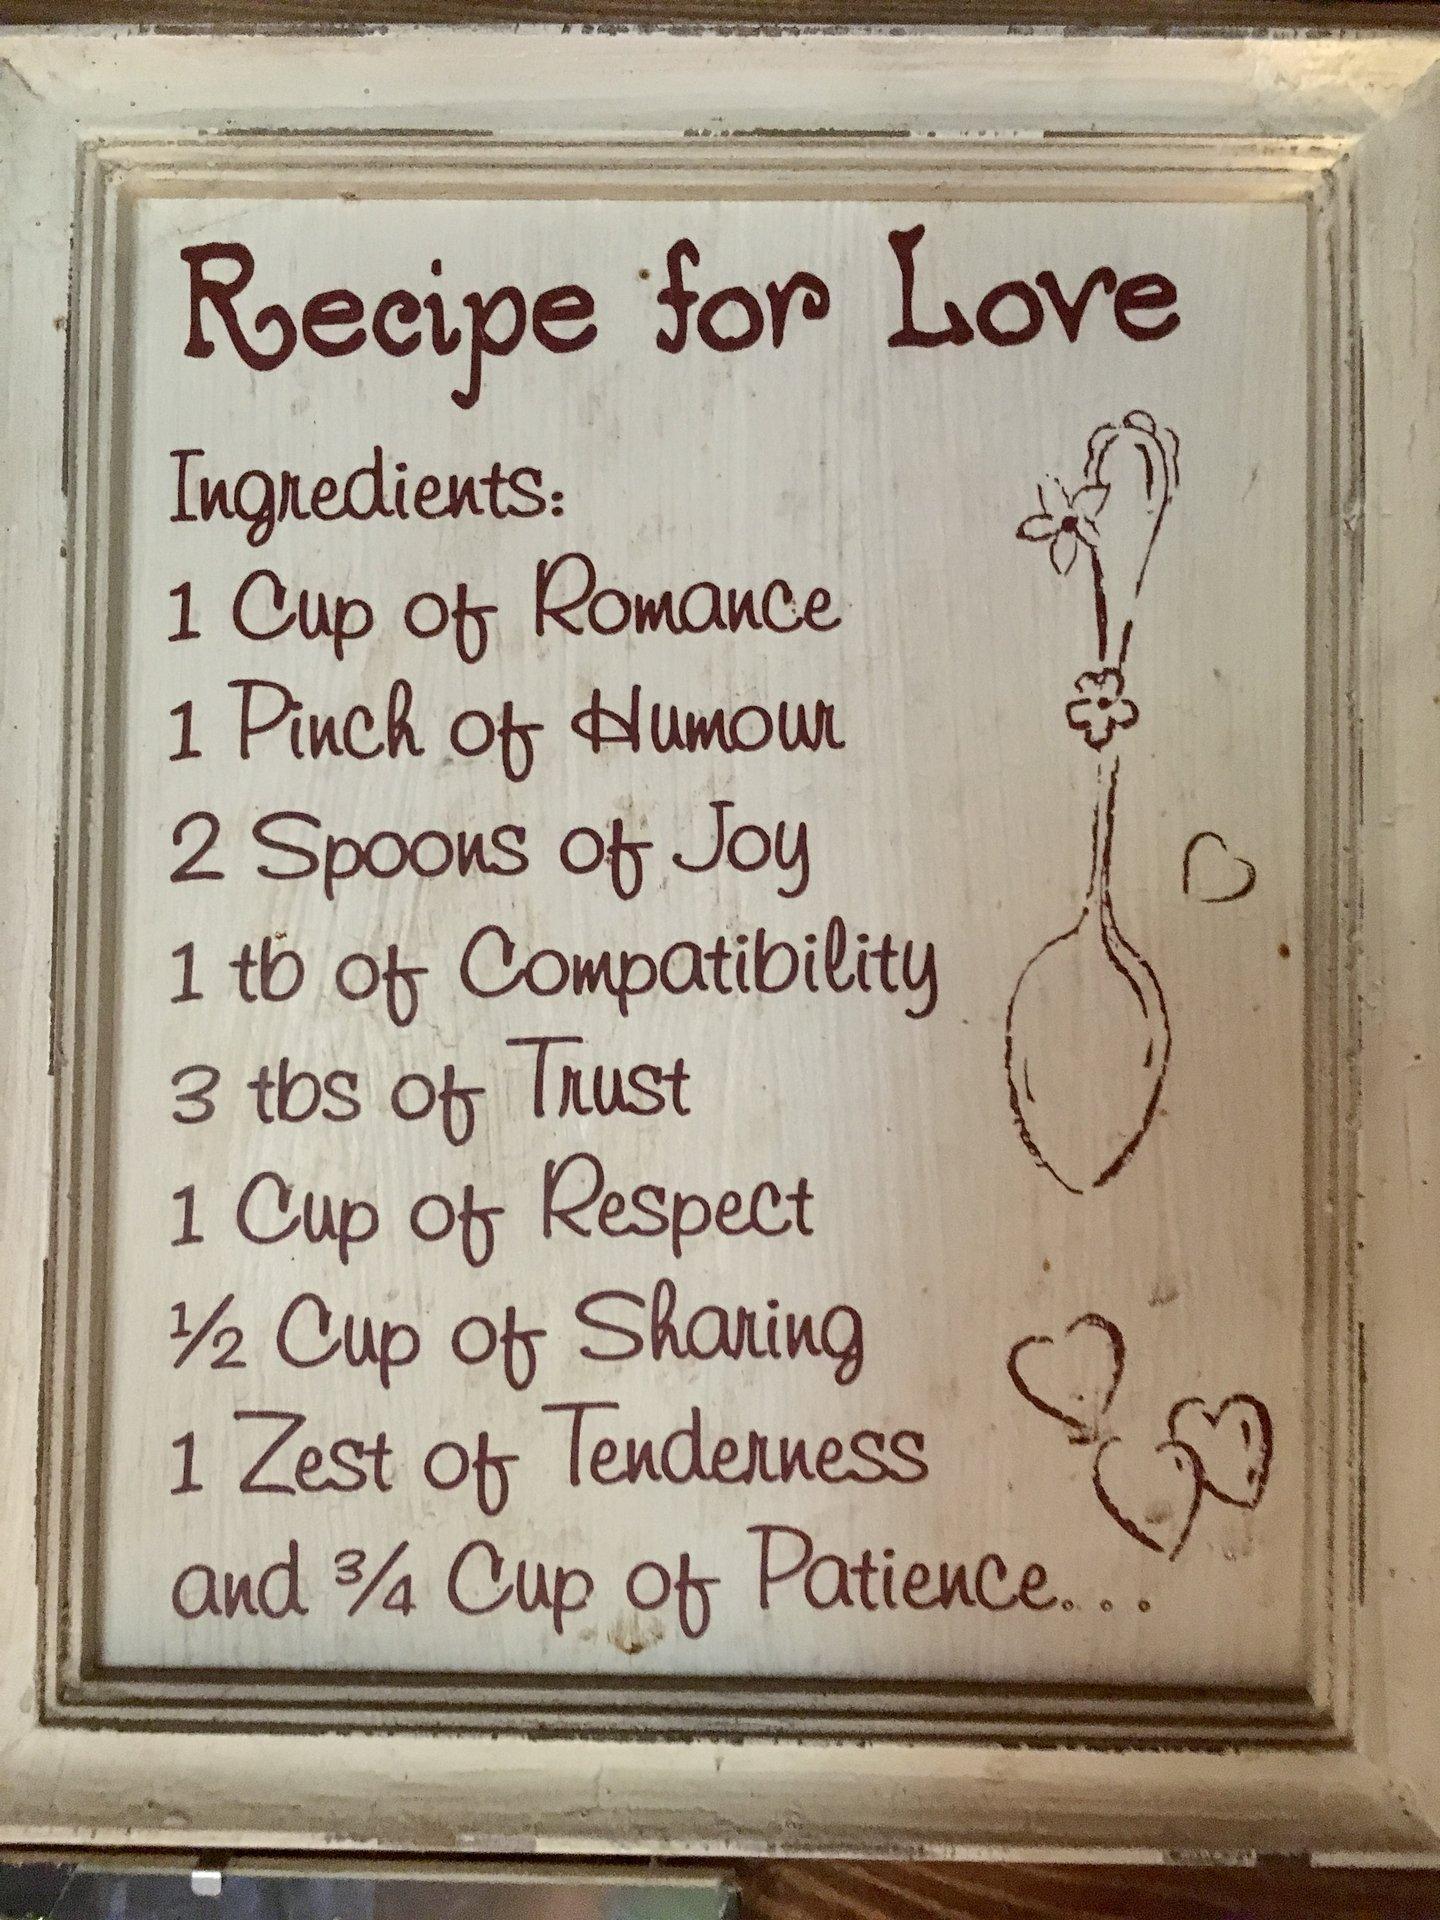 Recipe for Love
Ingredients:
1 Cup of Romance
1 Pinch of Humour
2 Spoons of Joy
1 tb of Compatibility
3 tbs of Trust
1 Cup of Respect
½ Cup of Sharing
1 Zest of Tenderness
and ¾ Cup of Patience...